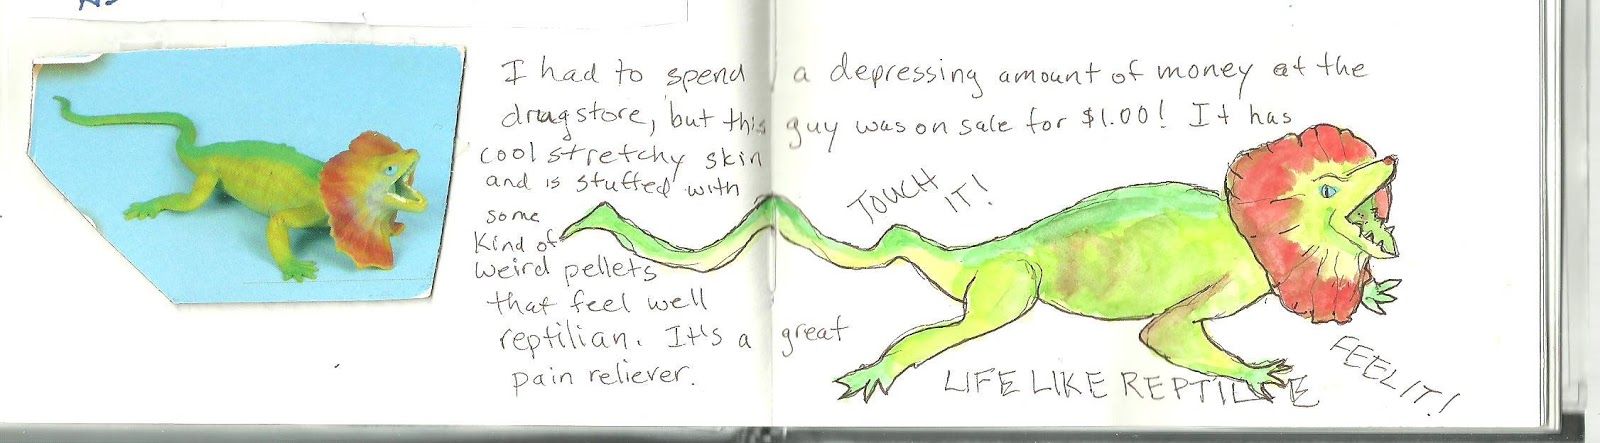 I had to spend a depressing amount of money at the
drugstore, but this guy was on sale for $1.00! It has
cool stretchy skin
and is stuffed with
some
kind of
weird pellets
that feel well
reptilian. It's a great
pain reliever.
TOUCH
IT!
LIFE LIKE REPTILE
FEEL IT!